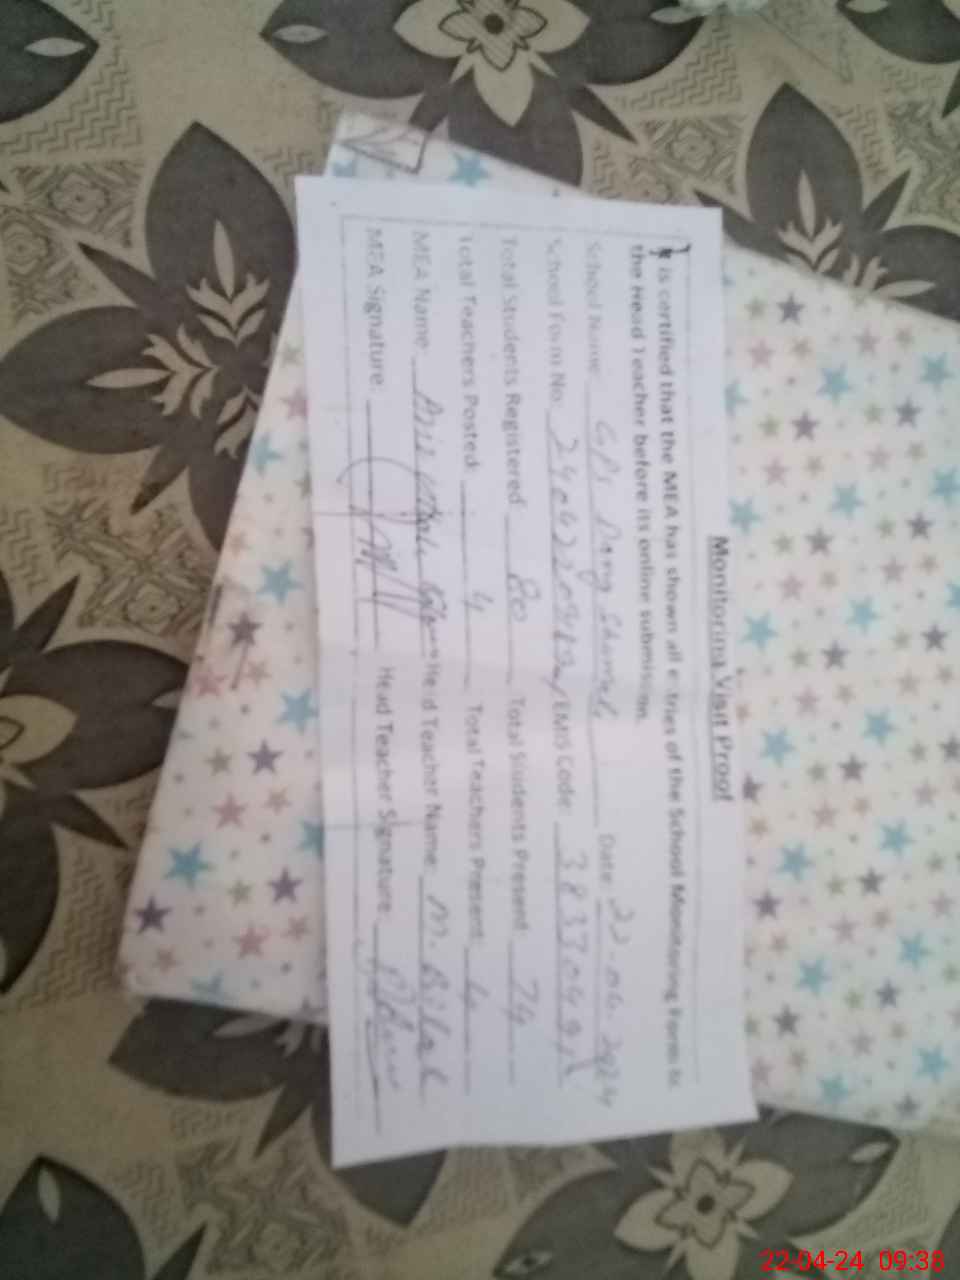 Monitoring Visit Proof
It is certified that the MEA has shown all entries of the School Monitoring Form to
the Head Teacher before its online submission.
School Name: GPS Dang Date: 22-04-2024
School Form No. EMIS Code:
Total Students Registered 80 Total Students Present 74
Total Teachers Posted: 4 Total Teachers Present: 4
MEA Name: Head Teacher Name: M. Bilal
MEA Signature: Head Teacher Signature:
22-04-24 09:38